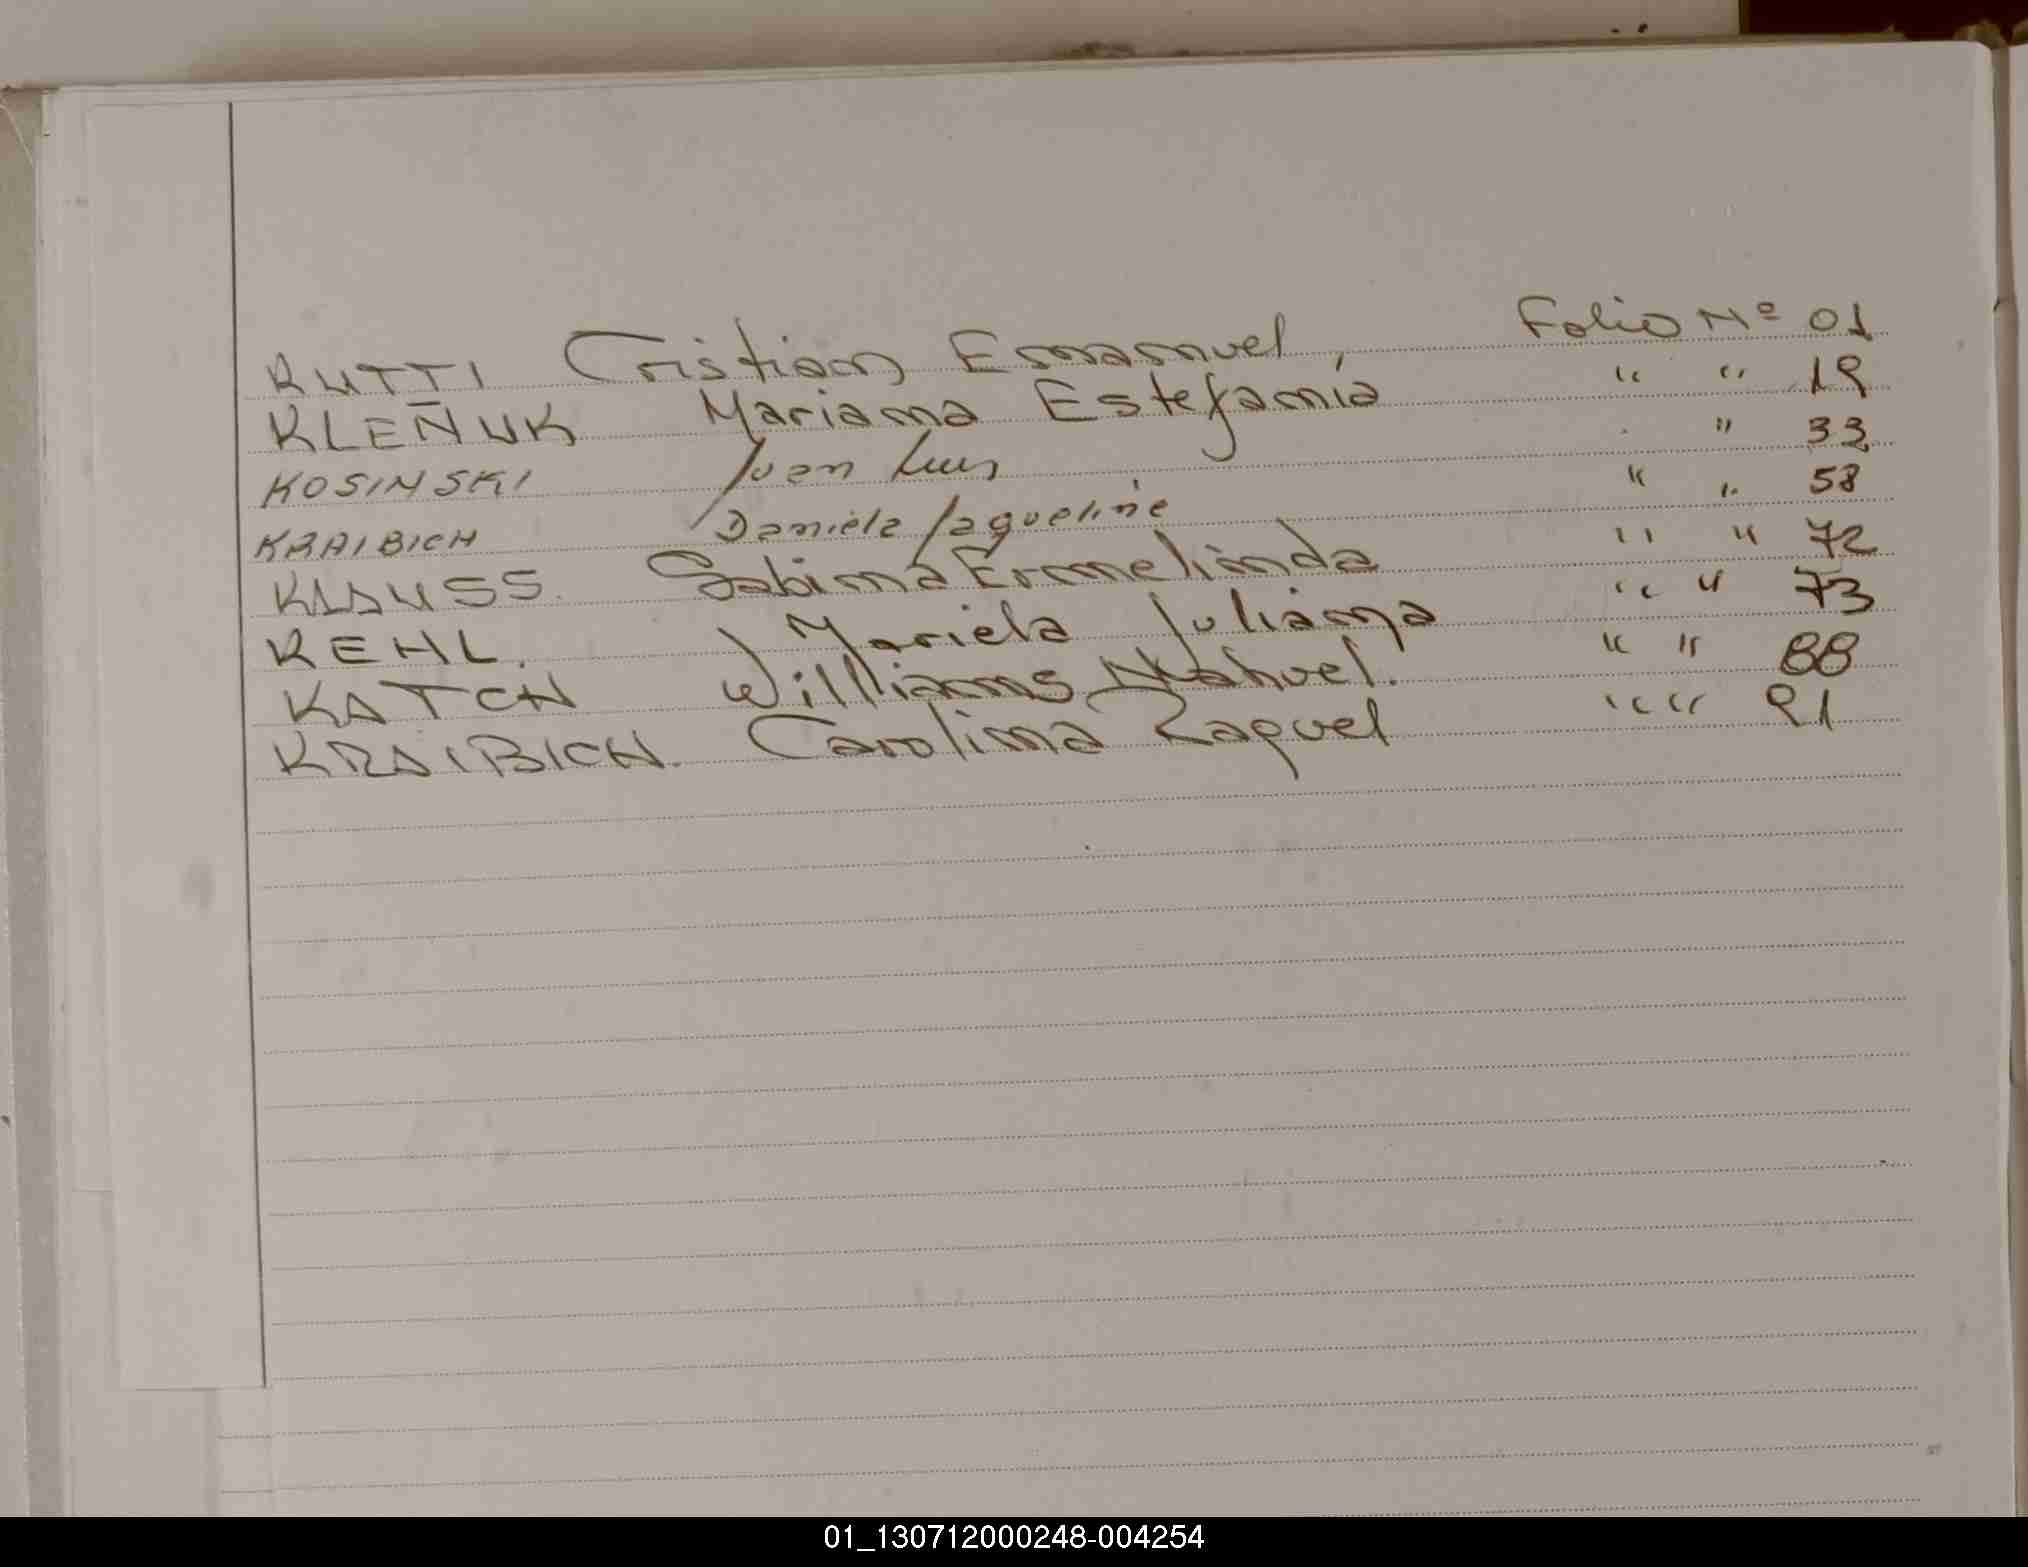 KUTTI Cristian Emanuel, Folio Nº 01
KLEÑUK Mariana Estefanía " " 19
KOSINSKI Juan Luis " 33
KRAIBICH Daniela Jaqueline " " 58
KLAUSS. Sabina Ermelinda " " 72
KEHL. Mariela Juliana " " 73
KATCH Williams Nahuel. " " 88
KRAIBICH. Carolina Raquel " " 91
01_130712000248-004254